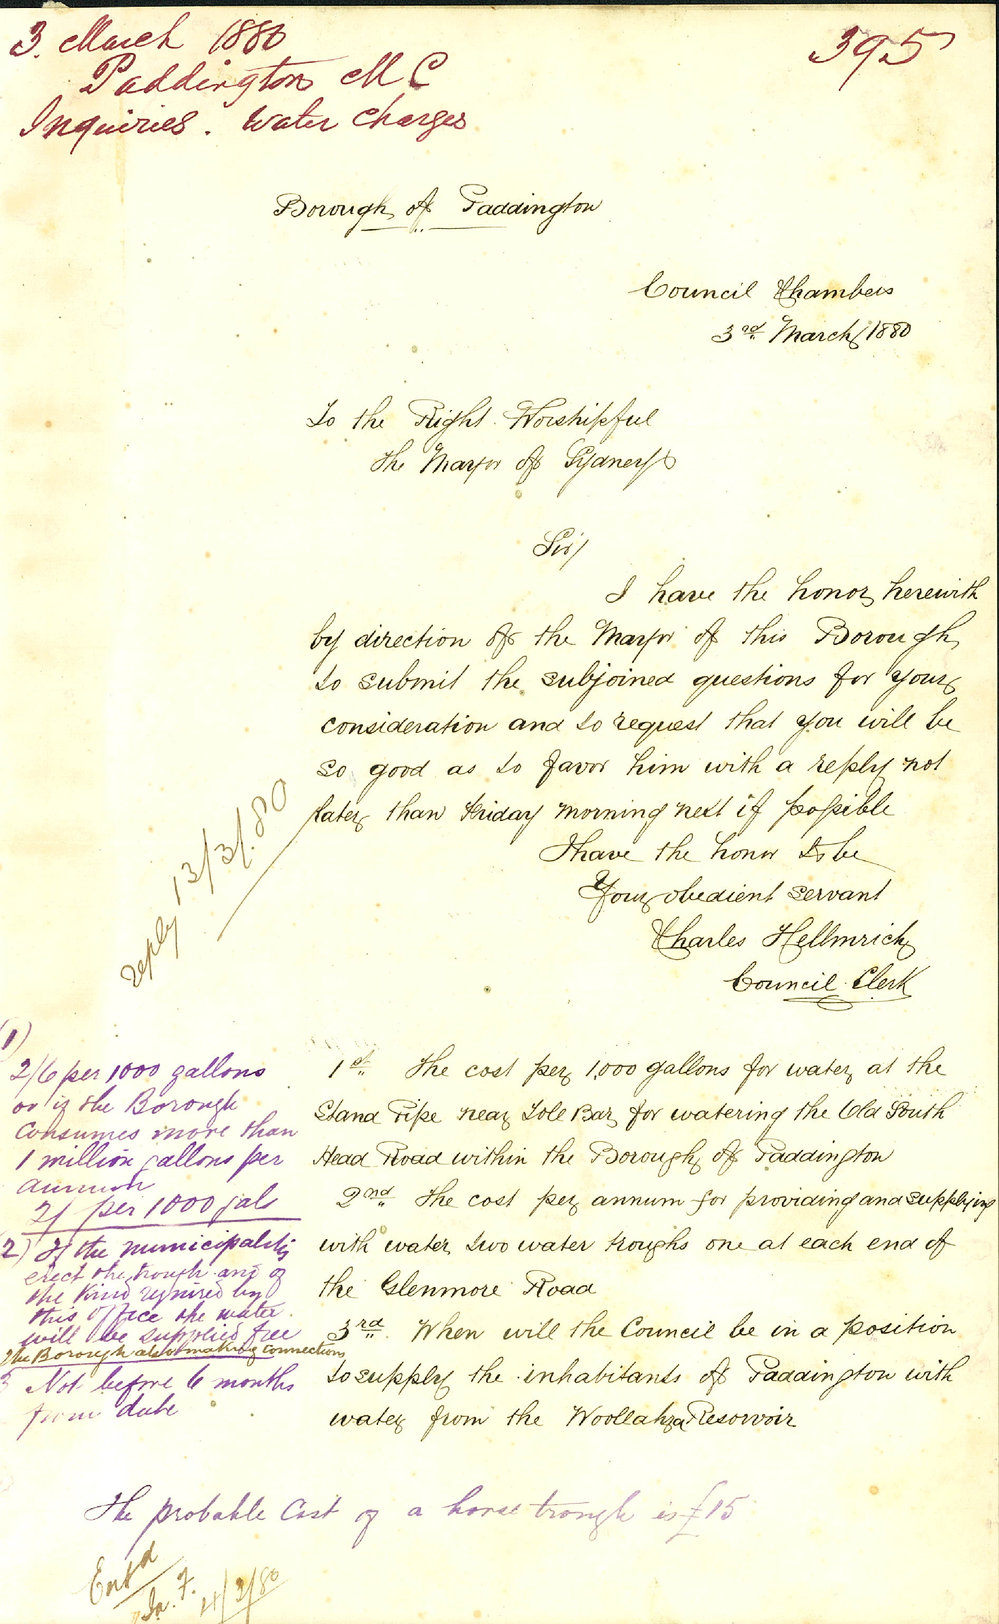 3. March 1880
Paddington M C
Inquiries. Water Charges
395
Borough of Paddington
Council Chambers
3rd March, 1880
To the Right Worshipful
the Mayor of Sydney
Sir/
I have the honor, herewith
by direction of the Mayor of this Borough,
to submit the subjoined questions for your
consideration and to request that you will be
so good as to favor him with a reply not
later than Friday morning next if possible
I have the honor to be
Your obedient servant
Charles Hellmrich
Council Clerk
reply 13/3/.80
1st The cost per 1,000 gallons for water at the
Stand Pipe near Tole Bar, for watering the Old South
Head Road within the Borough of Paddington
2nd The cost per annum for providing and supplying
with water two water troughs one at each end of
the Glenmore Road
3rd. When will the Council be in a position
to supply the inhabitants of Paddington with
water from the Woollahra Resorvoir
(1)
2/6 per 1000 gallons
or if the Borough
consumes more than
1 million gallons per
annum
2/ per 1000 gals
2) If the municipality
erect the trough and of
the kind required by
this office the water
will be supplied free
The Borough also making connections
3 Not before 6 months
from date
The probable Cost of a horse trough is £15
Ent'd
4/3/80